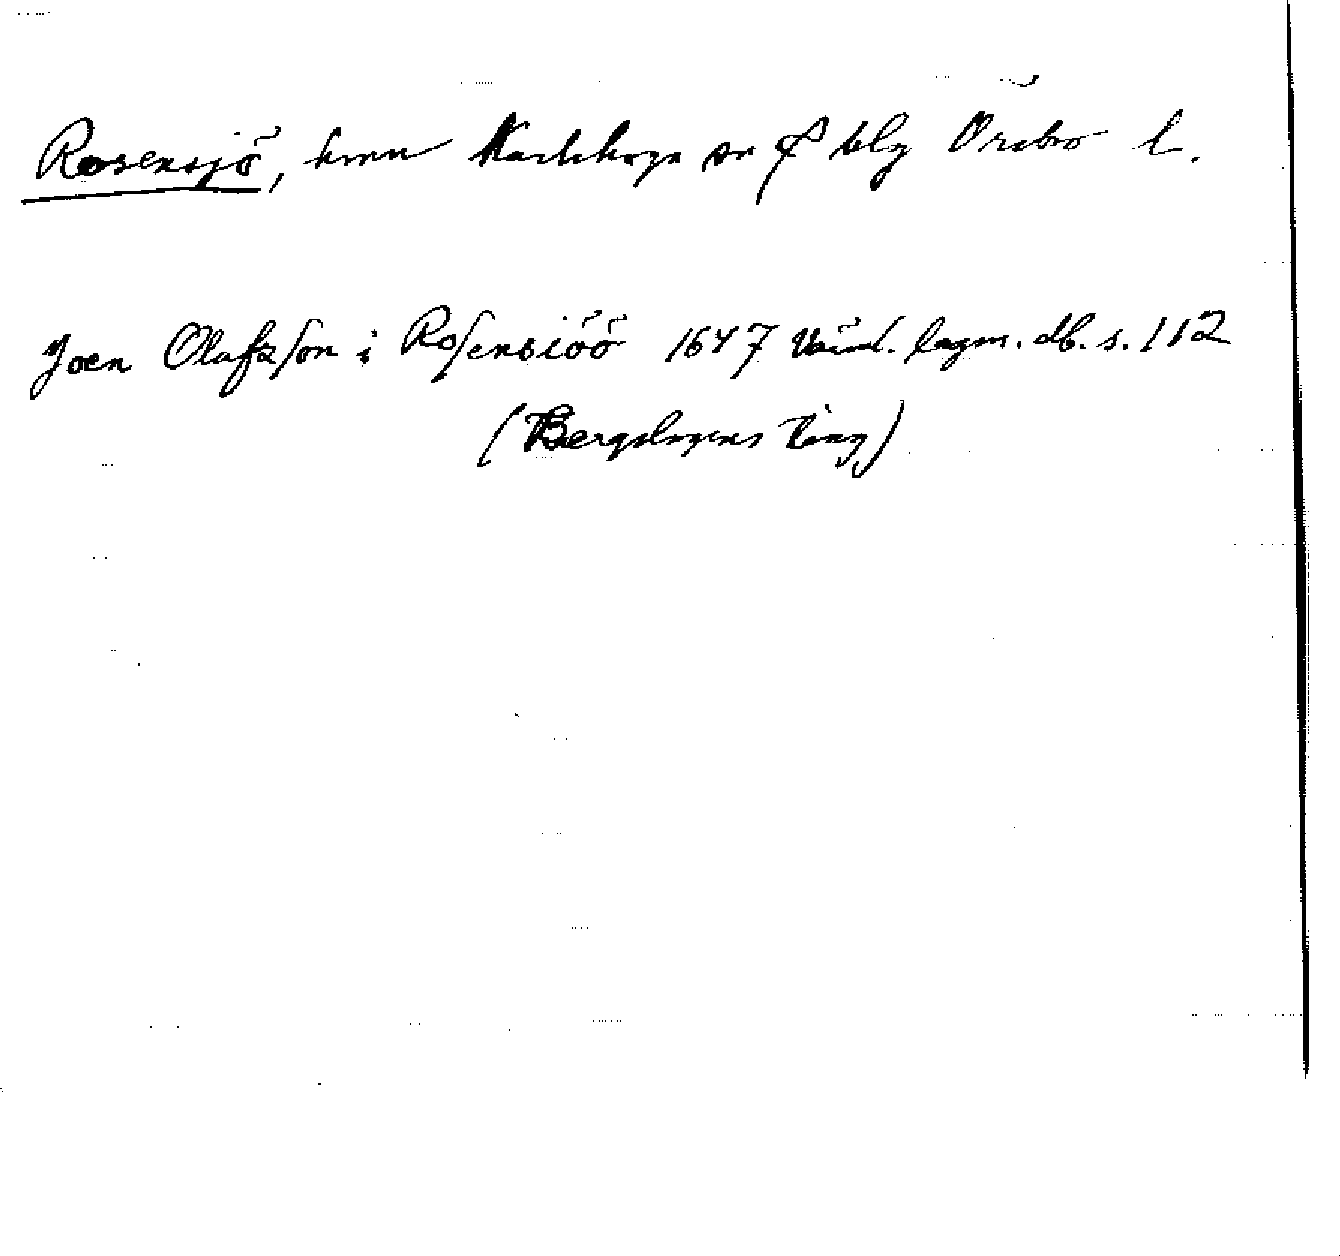 Rosensjö, hmn Karlskoga sn o blg Örebro l.
Joen Olafsson i Rosensiöö 1647 Värml. lagm. db. s. 112
(Bergslagens ting)